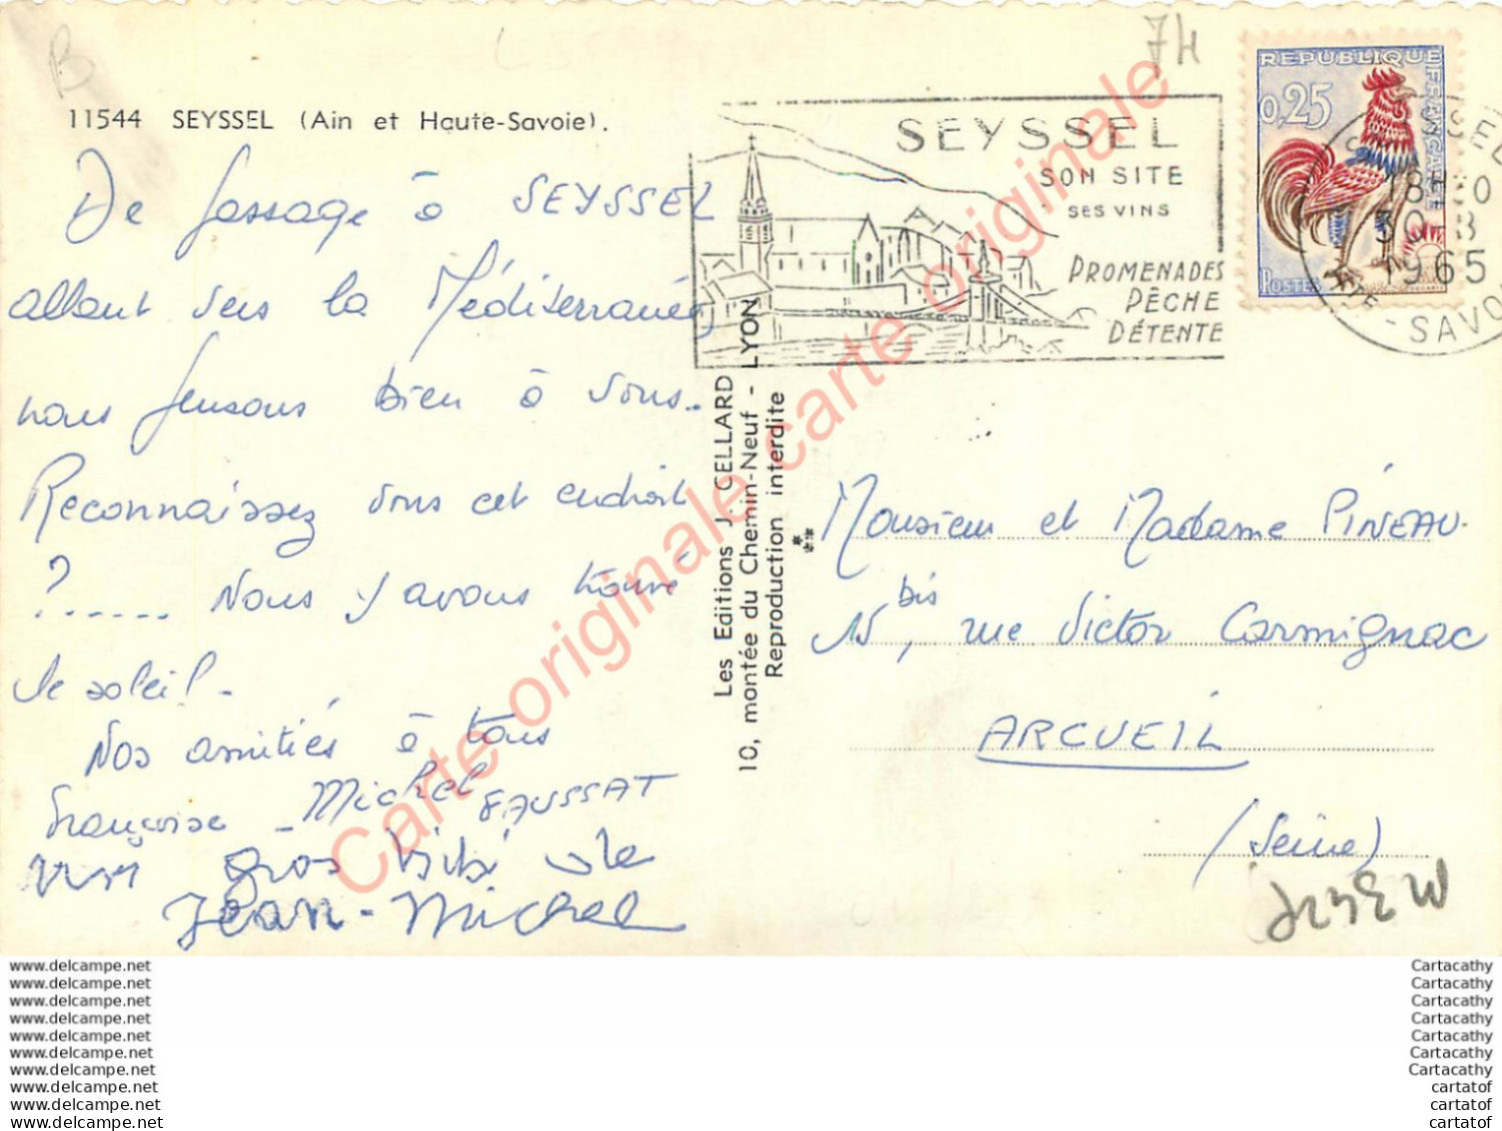 B
74
11544 SEYSSEL (Ain et Haute-Savoie).
De passage à SEYSSEL
allant vers la Méditerranée,
nous pensons bien à vous..
Reconnaissez vous cet endroit
?...... Nous y avons trouvé
le soleil.
Nos amitiés à tous
Françoise - Michel FAUSSAT
un gros bibi de
Jean-Michel
SEYSSEL
SON SITE
SES VINS
PROMENADES
PÊCHE
DÉTENTE
REPUBLIQUE FRANÇAISE
0,25
POSTES
SEYSSEL
18H30
30-8
1965
HTE-SAVOIE
Les Editions J. CELLARD
10, montée du Chemin-Neuf - LYON
Reproduction interdite
Monsieur et Madame PINEAU.
15 bis, rue Victor Carmignac
ARCUEIL
(Seine)
Carte originale carte originale
www.delcampe.net
www.delcampe.net
www.delcampe.net
www.delcampe.net
www.delcampe.net
www.delcampe.net
www.delcampe.net
www.delcampe.net
www.delcampe.net
www.delcampe.net
Cartacathy
Cartacathy
Cartacathy
Cartacathy
Cartacathy
Cartacathy
Cartacathy
cartatof
cartatof
cartatof